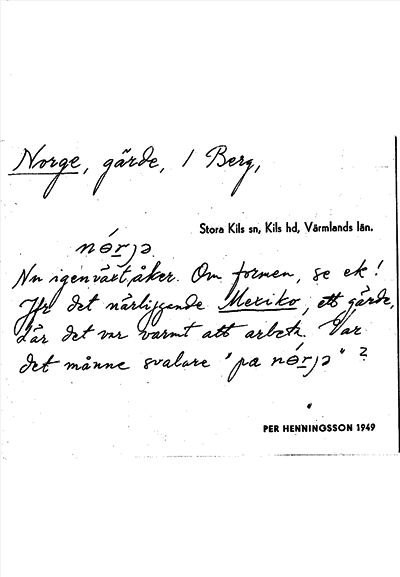 Norge, gärde, 1 Berg,
Stora Kils sn, Kils hd, Värmlands län.
nɵ́rjə
Nu igenväxt åker. Om formen, se ek!
Jfr det närliggande Mexiko, ett gärde,
där det var varmt att arbeta. Var
det månne svalare "pa nɵ́rjə"?
PER HENNINGSSON 1949